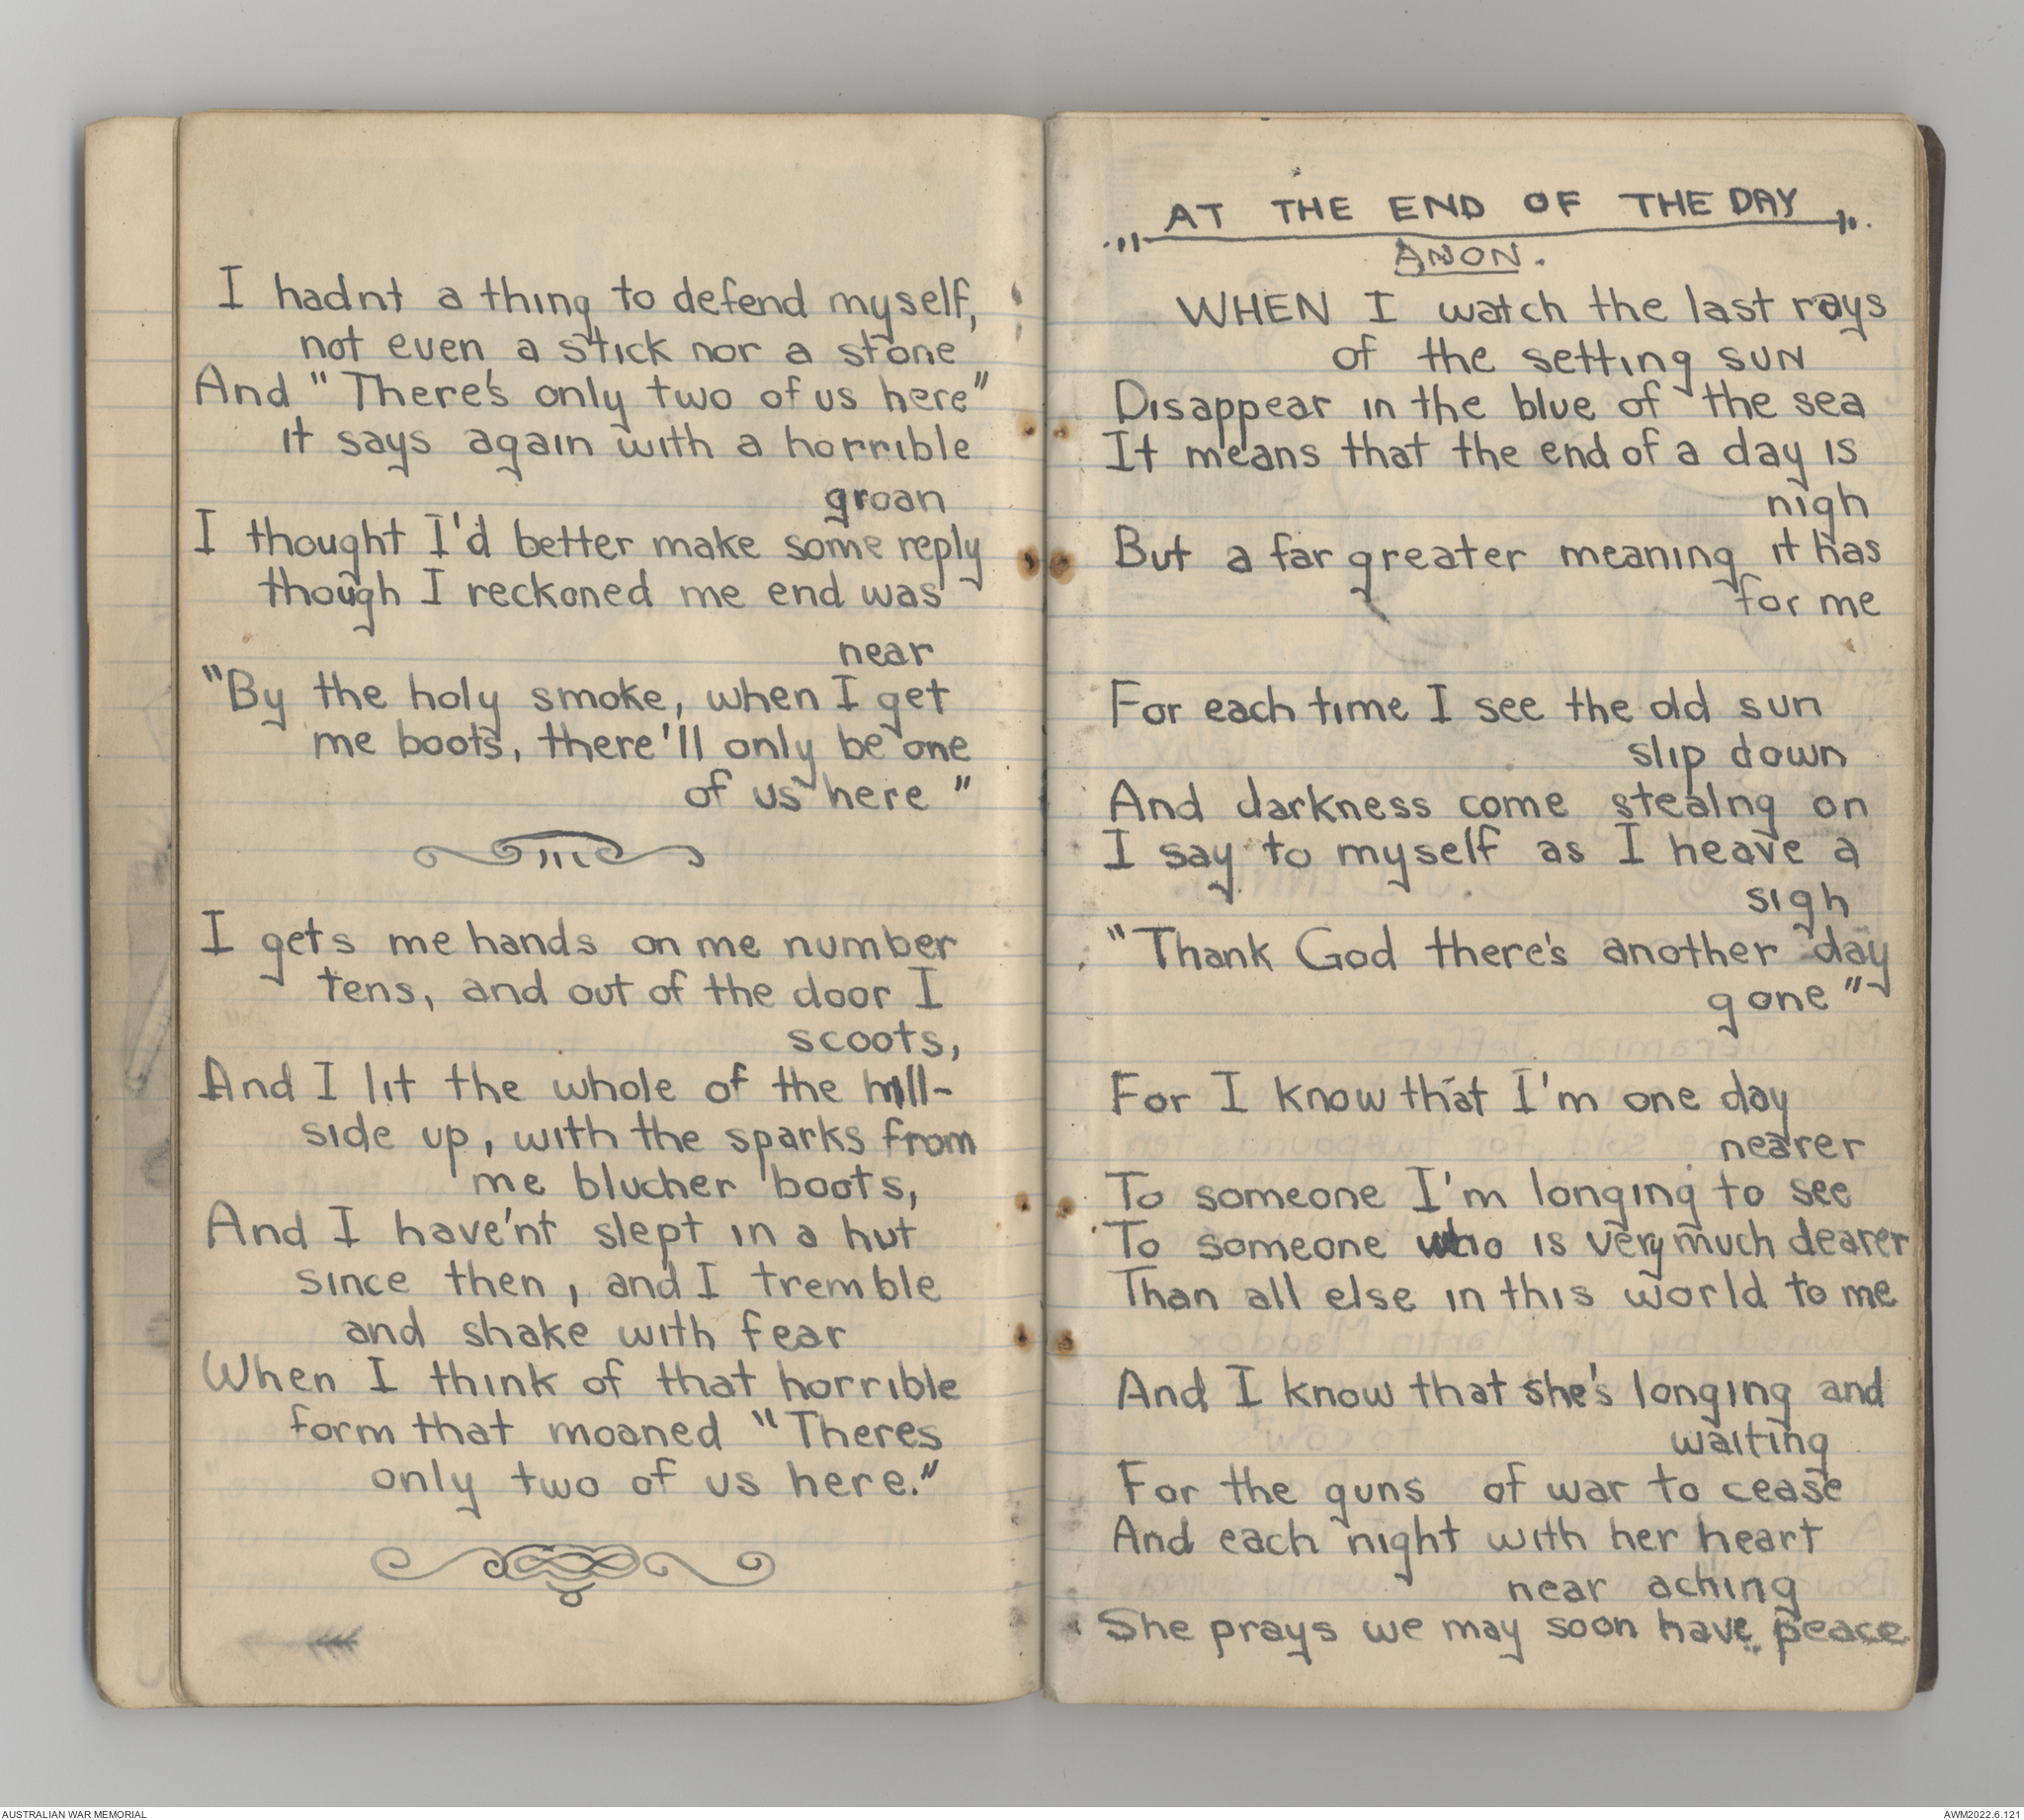 I hadnt a thing to defend myself,
not even a stick nor a stone
And "There's only two of us here"
it says again with a horrible
groan
I thought I'd better make some reply
though I reckoned me end was
near
"By the holy smoke, when I get
me boots, there'll only be one
of us here"
I gets me hands on me number
tens, and out of the door I
scoots,
And I lit the whole of the hill-
side up, with the sparks from
me blucher boots,
And I have'nt slept in a hut
since then, and I tremble
and shake with fear
When I think of that horrible
form that moaned "Theres
only two of us here."
"AT THE END OF THE DAY"
ANON.
WHEN I watch the last rays
of the setting sun
Disappear in the blue of the sea
It means that the end of a day is
nigh
But a far greater meaning it has
for me
For each time I see the old sun
slip down
And darkness come stealng on
I say to myself as I heave a
sigh
"Thank God there's another day
gone"
For I know that I'm one day
nearer
To someone I'm longing to see
To someone who is very much dearer
Than all else in this world to me
And I know that she's longing and
waiting
For the guns of war to cease
And each night with her heart
near aching
She prays we may soon have peace
AUSTRALIAN WAR MEMORIAL
AWM2022.6.121